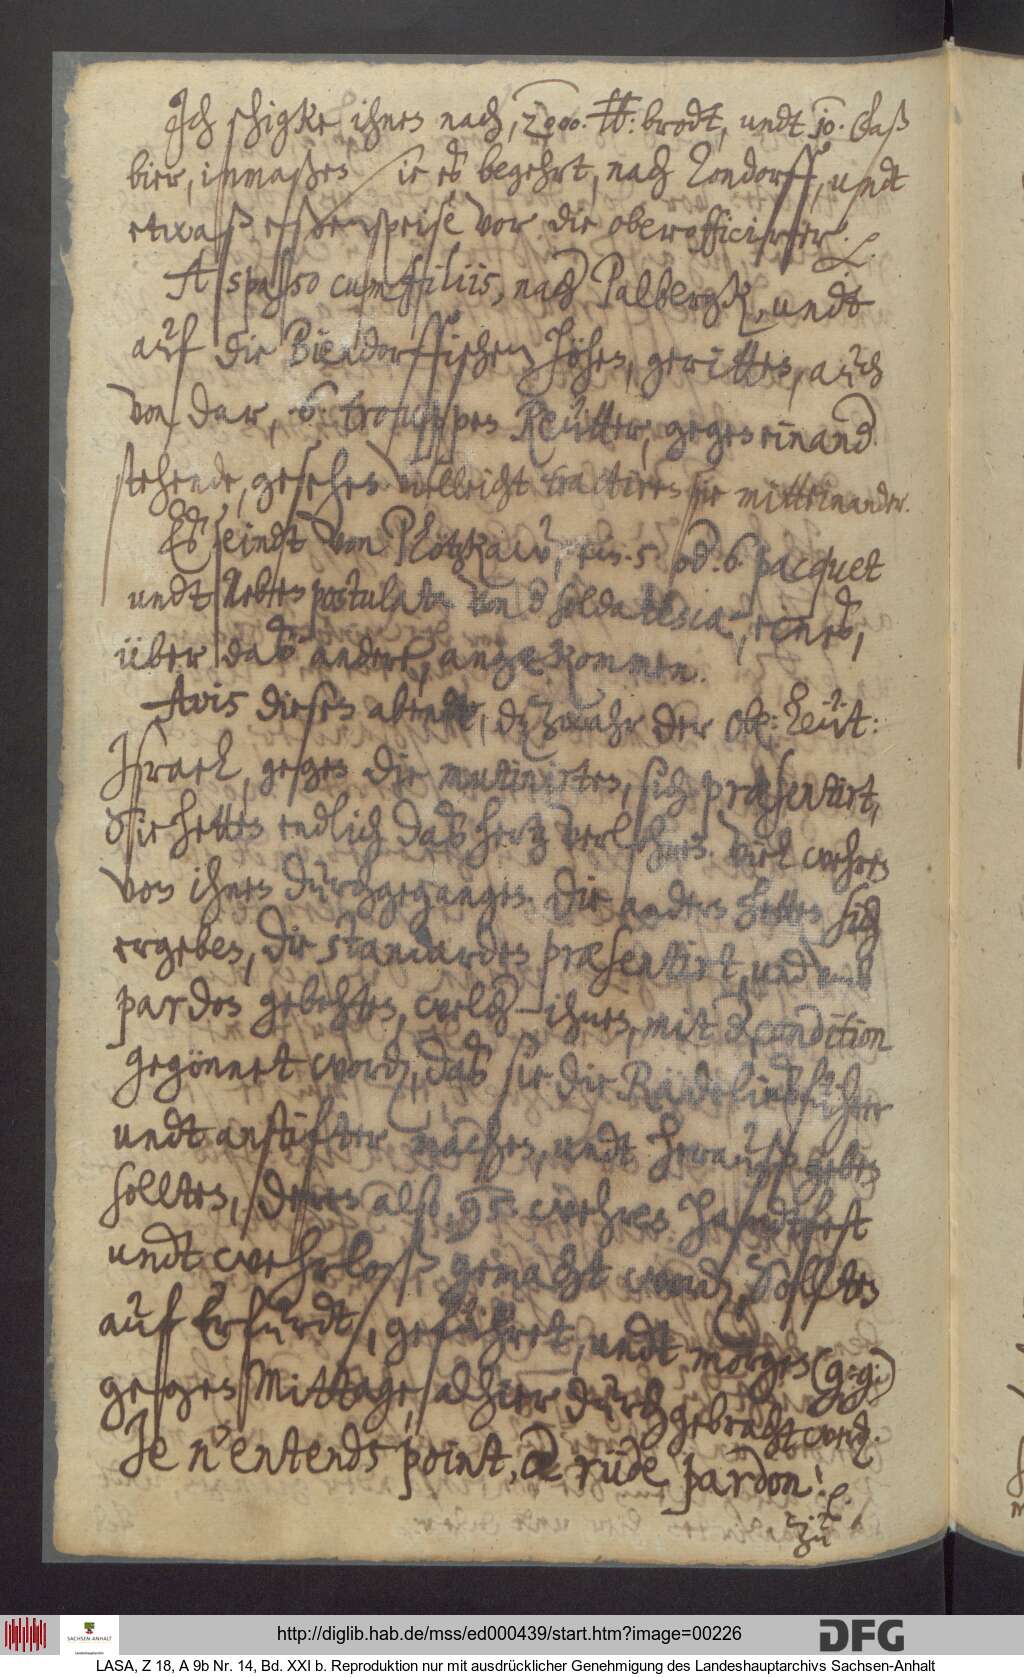 Ich schigke ihnen nach, 2000. ℔: brodt, undt 10. Faß
bier, inmaßen sie es begehrt, nach Hondorff, undt
etwaß eßenspeise vor die oberofficirer. &.
A spasso cum filiis, nach Palbergk, undt
auf die Bierdorffischen Höhen, geritten, auch
von dar, 6. trouppen Reütter, gegen einand
stehende, gesehen. Vielleicht tractiren sie mitteinander.
Es seindt von Plötzkaw, ein. 5. od. 6. pacquet
undt neben postulata von der soldatesca, eines,
über das andere, angekommen.
Avis diesen abendt, dz zwahr der Ob: Leüt:
Israel, gegen die mutinirten, sich præsentirt,
Sie hetten endlich das hertz verlohren. Viel wehren
von ihnen durchgegangen. Die andern hetten sich
ergeben, die standarden præsentirt, und umb
pardon gebehten, welch ihnen, mit der condition
gegönnet word, das sie die Rädelinsführer
undt anstifter machen, undt herauß geben
sollten, deren also, 95. wehren handtfest
undt wehrloß gemacht word, Sollten
auf Erfurdt, geführet, undt morgen (g. g.)
gegen Mittage, alhier durchgebracht werd.
Je n'entends point, ce rude pardon! &.
Zu
http://diglib.hab.de/mss/ed000439/start.htm?image=00226
SACHSEN-ANHALT
Landeshauptarchiv
DFG
LASA, Z 18, A 9b Nr. 14, Bd. XXI b. Reproduktion nur mit ausdrücklicher Genehmigung des Landeshauptarchivs Sachsen-Anhalt